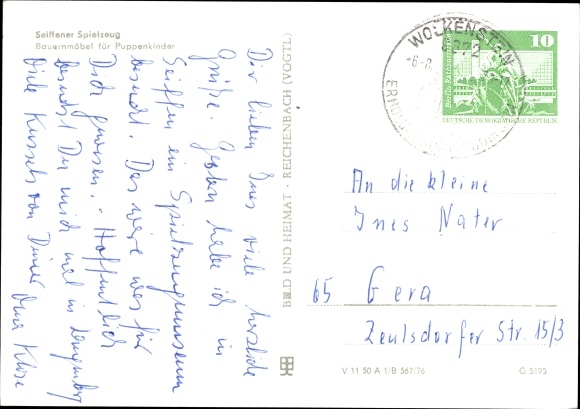 Seiffener Spielzeug
Bauernmöbel für Puppenkinder
Dir lieben Ines viele herzliche
Grüße. Gestern habe ich in
Seiffen ein Spielzeugmuseum
besucht. Das wäre was für
Dich gewesen. - Hoffentlich
besuchst Du mich mal in
Viele Kussels von Deiner Oma Klose
BILD UND HEIMAT · REICHENBACH (VOGTL)
WOLKENSTEIN
9372
10
DEUTSCHE DEMOKRATISCHE REPUBLIK
An die kleine
Ines Nater
65 Gera
Zeulsdorfer Str. 15/3
V 11 50 A 1/B 567/76
G 5195